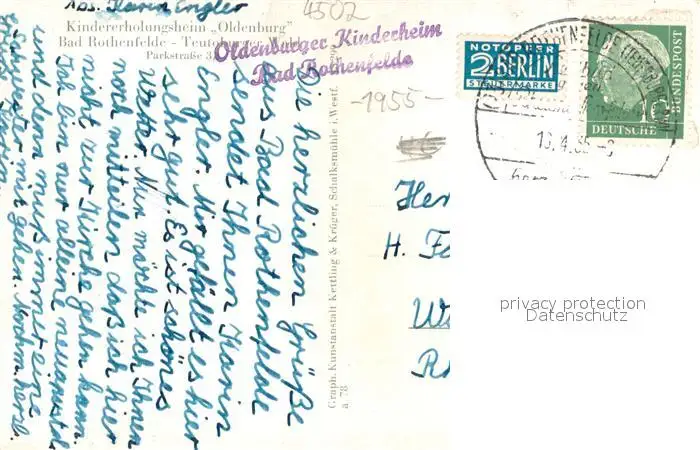 Abs. Karin Engler
4502
Kindererholungsheim „Oldenburg"
Bad Rothenfelde - Teutoburger Wald
Parkstraße
Oldenburger Kinderheim
Bad Rothenfelde
-1955-
NOTOPFER
2 BERLIN
STEUERMARKE
DEUTSCHE
BUNDESPOST
10
Die herzlichen Grüße
aus Bad Rothenfelde
sendet Ihnen Karin
Engler. Mir gefällt es hier
sehr gut. Es ist schönes
Wetter. Nun möchte ich Ihnen
noch mitteilen daß ich hier
nicht zur Kirche gehen kann.
und dem muß immer eine
mit gehen. Nochm. herzl.
Graph. Kunstanstalt Kettling & Krüger, Schalksmühle i. Westf.
a 78
H.
privacy protection
Datenschutz